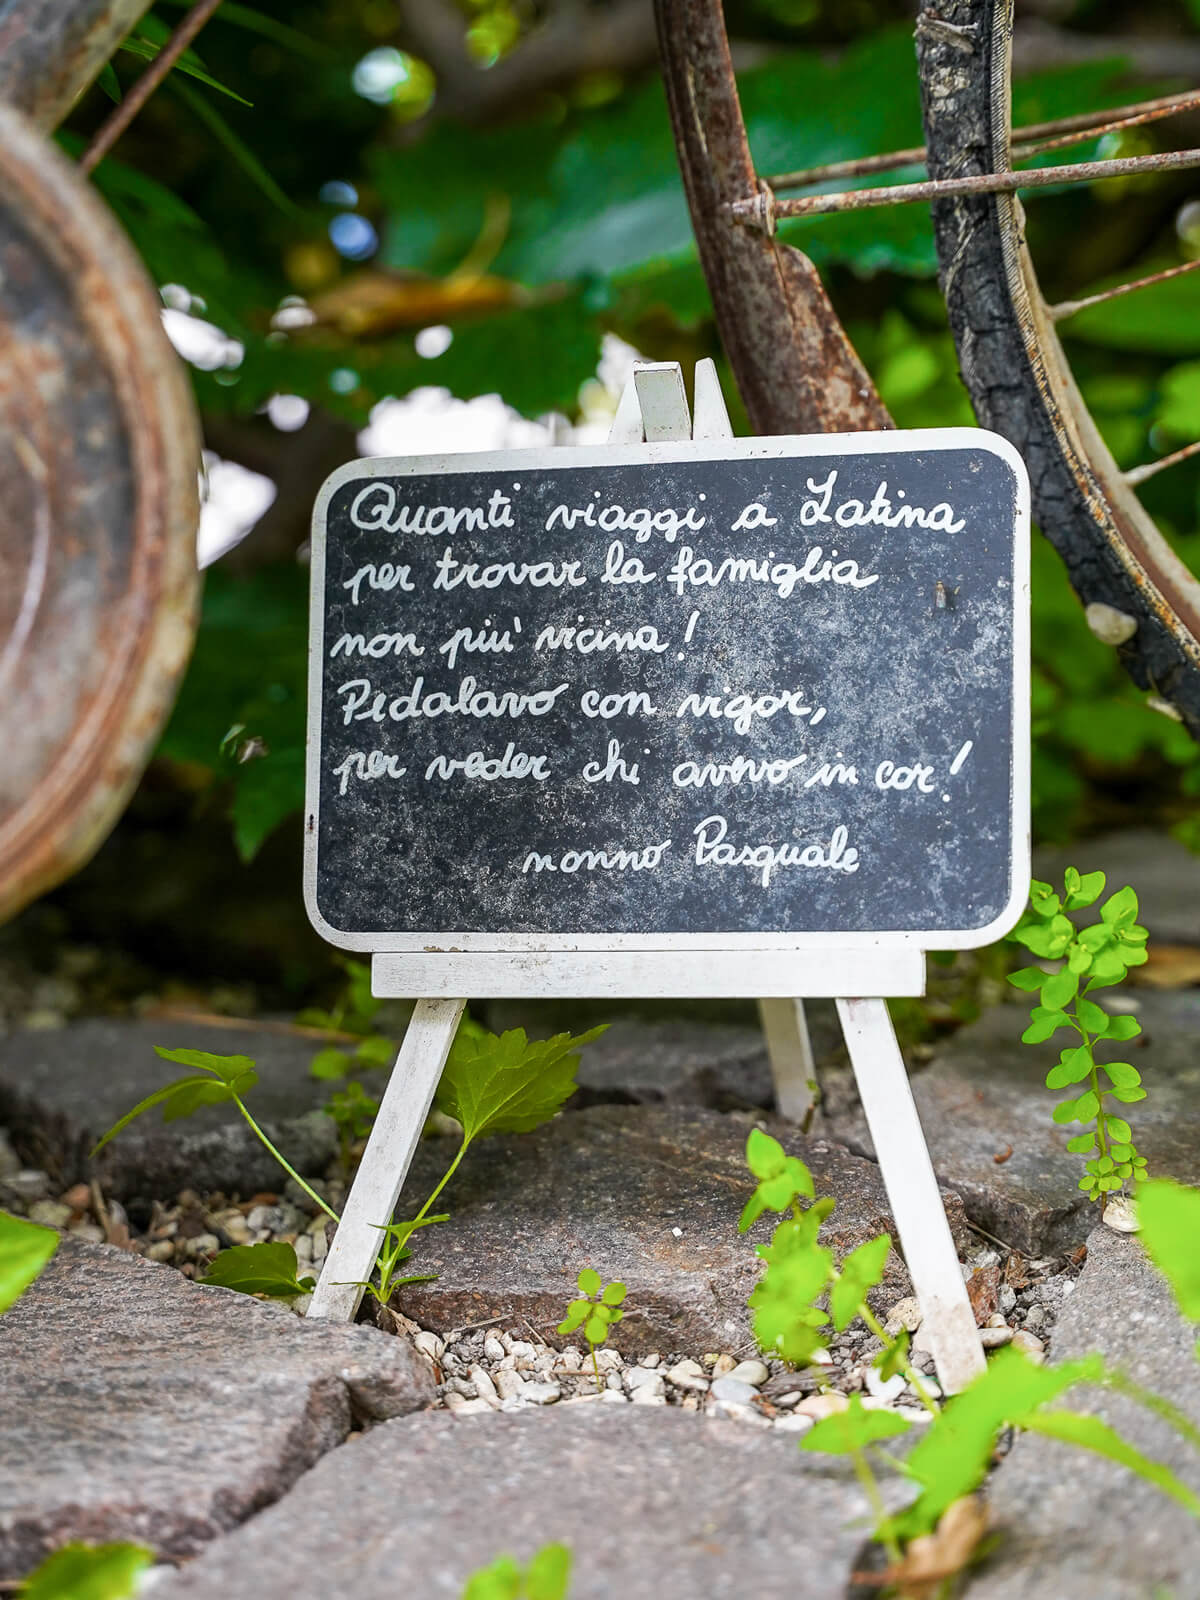 Quanti viaggi a Latina
per trovar la famiglia
non più vicina!
Pedalavo con vigor,
per veder chi avevo in cor!
nonno Pasquale